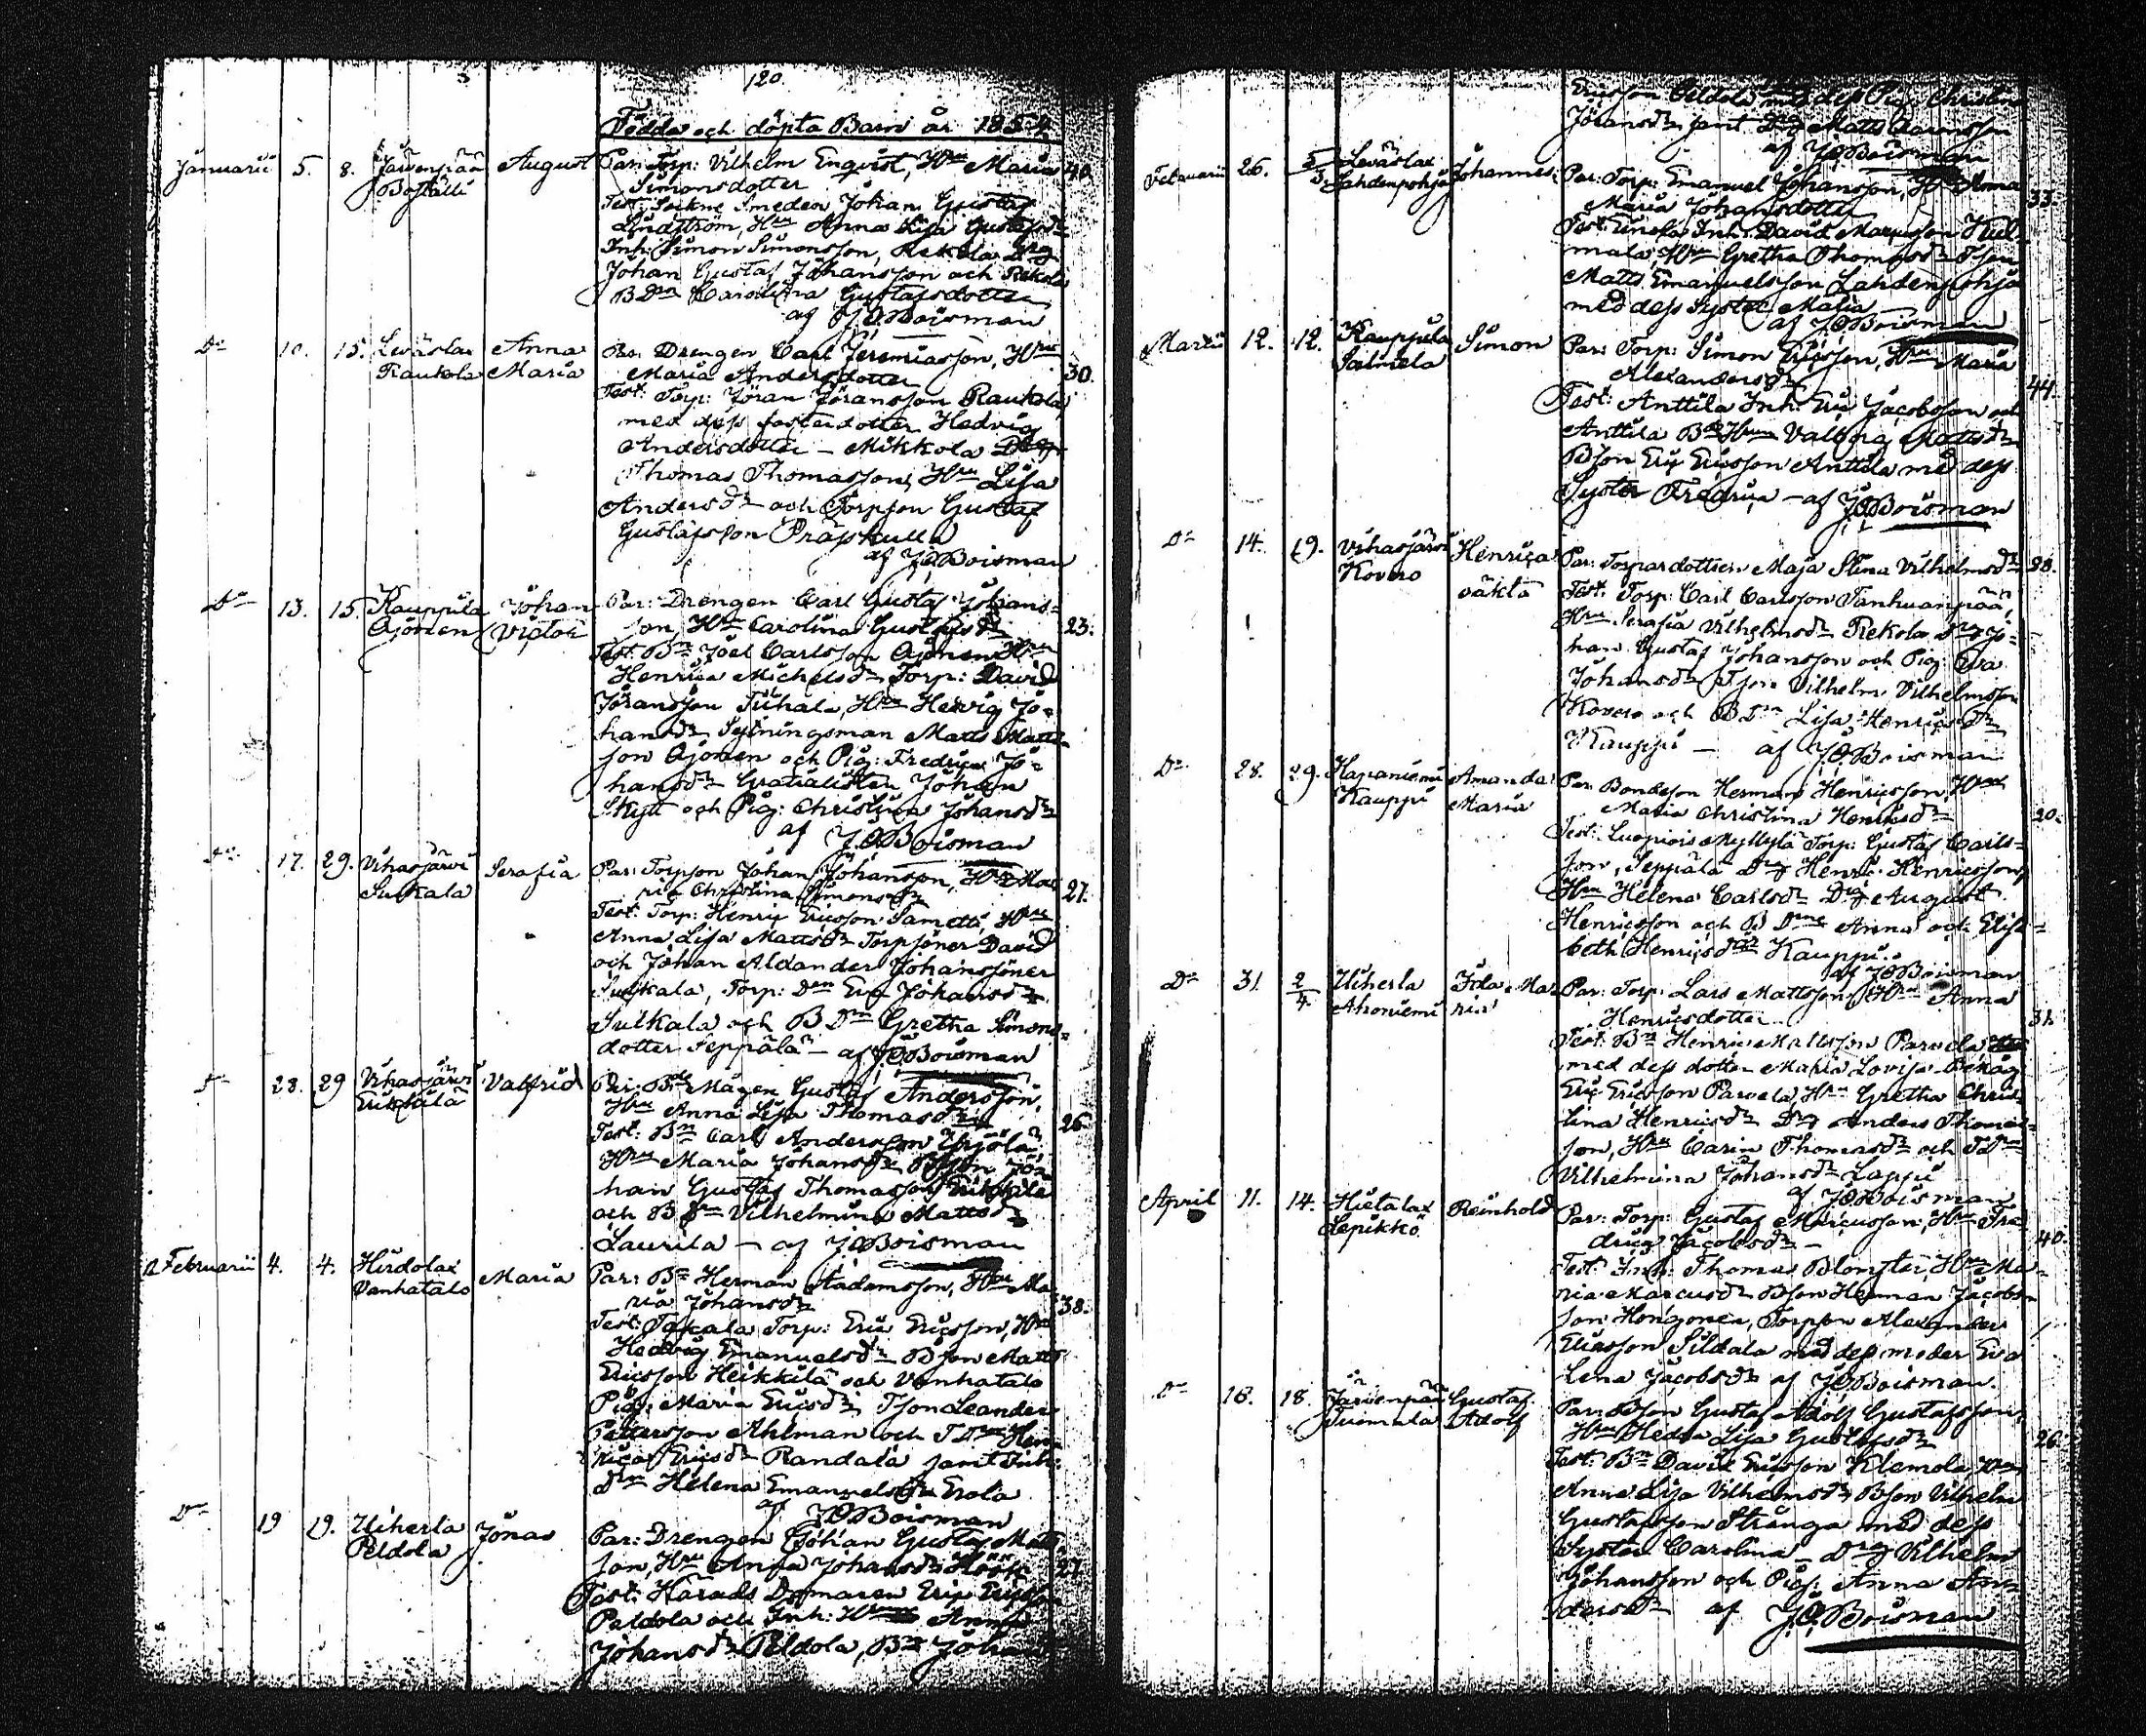 120.
Födda och döpta Barn år 1854
Januarii 5. 8. Järvenpää August Par: Torp: Vilhelm Enqvist, Hru Maria 40.
Boställi Simonsdotter
Test: Sockne Smeden Johan Gustaf
Lindström, Hru Anna Lisa Gustafsdr
Inh: Simon Simonsson, Rekola Drg
Johan Gustaf Johansson och Rekola
BDrn Carolina Gustafsdotter
af J.O.Boisman
Do 10. 15. Leväslax Anna Par: Drengen Carl Jeremiasson, Hru
Raukola Maria Maria Andersdotter 30.
Test: Torp: Jöran Jöransson Raukola
med dess fosterdotter Hedvig
Andersdotter – Mikkola Drg
Thomas Thomasson, Hru Lisa
Andersdr och Torpson Gustaf
Gustafsson Präjskulla
af J.O.Boisman
Do 13. 15. Kauppila Johan Par: Drengen Carl Gustaf Johans=
Ojonen Victor son, Hru Carolina Gustafsdr 23.
Test: Bn Joel Carlsson Ojonen Hru
Henrica Michelsdr Torp: David
Jöransson Tuhala, Hru Hedvig Jo=
hansdr Sytningsman Matts Matts=
son Ojonen och Pig: Fredrica Jo=
hansdr Gratialisten Johan
Skytt och Pig: Christina Johansdr
af J.O.Boisman
Do 17. 29. Vihasjärvi Serafia Par: Torpson Johan Johansson, Hru Ma=
Sulkala ria Christina Simonsdr 27.
Test: Torp: Henric Ericsson Sametti, Hru
Anna Lisa Mattsdr Torpsöner David
och Johan Aldander Johanssöner
Sulkala, Torp: Drn Eva Johansdr
Sulkala och BDrn Gretha Simons=
dotter Seppälä – af J.O.Boisman
Do 28. 29 Vihasjärvi Valfrid Par: Bde Mågen Gustaf Andersson,
Erikkilä Hru Anna Lisa Thomasdr 26.
Test: Bn Carl Andersson Yrjölä,
Hru Maria Johansdr Bson Jo=
han Gustaf Thomasson Erikkilä
och BDrn Vilhelmina Mattsdr
Laurila – af J.O.Boisman
Februarii 4. 4. Hirdolax Maria Par: Bn Herman Aadamsson, Hru Ma=
Vanhatalo ria Johansdr 38.
Test: Torp: Eric Ericsson, Hru
Hedvig Emanuelsdr Bson Matts
Ericsson Heikkilä och Vanhatalo
Pig: Maria Ericsdr Tson Leander
Pettersson Ahlman och TDrn Hen=
rica Ericsdr Randala samt Inh:
Drn Helena Emanuelsdr Erola
af J.O.Boisman
Do 19 19. Uiherla Jonas Par: Drengen Johan Gustaf Matts=
Peldola son, Hru Johansdr Höök 27.
Test: Härads Domaren Eric Ericsson
Paldola och Inh: Hru Anna
Johansdr Peldola, Bn Johan
Ericsson Peldola med dess Pig: Christina
Jöransdr samt Drg Matts
af J.O.Boisman
Februarii 26. 5/3 Leväslax Johannes Par: Torp: Emanuel Johansson, Hru Anna
Lahdenpohja Maria Johansdotter 33.
Test: Inh: David Marcusson Kul=
mala, Hru Gretha Thomasdr Tson
Matts Emanuelsson Lahdenpohja
med dess Syster Maria
af J.O.Boisman
Martii 12. 12. Kauppila Simon Par: Torp: Simon Ericsson, Hru Maria
Salmela Alexandersdr 44.
Test: Anttila Inh: Eric Jacobsson och
Anttila Bde Hru Valborg Mattsdr
Bson Eric Ericsson Anttila med dess
Syster Fredrica – af J.O.Boisman
Do 14. 19. Vihasjärvi Henrica Par: Torpardottren Maja Stina Vilhelmsdr 28.
Kovero oäkta Test: Torp: Carl Carlsson Tanhuanpää,
Hru Serafia Vilhelmsdr Rekola Drg Jo=
han Gustaf Johansson och Pig: Eva
Johansdr Tson Vilhelm Vilhelmsson
Kovero och BDrn Lisa Henricsdr
Kauppi – af J.O.Boisman
Do 28. 29. Hapaniemi Amanda Par: Bondeson Herman Henricsson, Hru
Kauppi Maria Maria Christina Henricsdr 20.
Test: Luopiois Myllylä Torp: Gustaf Carls=
son, Seppälä Drg Henric Henricsson,
Hru Helena Carlsdr Drg August
Henricsson och BDrne Anna och Elisa=
beth Henricsdr Kauppi.
af J.O.Boisman
Do 31. 2/4 Uiherla Ida Ma= Par: Torp: Lars Mattsson, Hru Anna
Ahoniemi ria Henricsdotter 31.
Test: Bn Henric Mattsson Parvela
med dess dotter Maria Lovisa
Eric Ericsson Parvela, Hru Gretha Chris=
tina Henricsdr Drg Anders Thomas=
son, Hru Carin Thomasdr och TDrn
Vilhelmina Johansdr Lappi
af J.O.Boisman
April 11. 14. Hietalax Reinhold Par: Torp: Gustaf Marcusson, Hru Fre=
Lepikkö drica Jacobsdr – 40.
Test: Inh: Thomas Blomster, Hru Ma=
ria Marcusdr Bson Herman Jacobs=
son Hongonen, Torpson Alexander
Eliasson Sildala med dess moder Eva
Lena Jacobsdr af J.O.Boisman.
Do 18. 18. Järvenpää Gustaf Par: Bson Gustaf Adolf Gustafsson,
Tuomala Adolf Hru Hedda Lisa Gustafsdr 26.
Test: Bn David Ericsson Klemola, Hru
Anna Lisa Vilhelmsdr Bson Vilhelm
Gustafsson Strånga med dess
Syster Carolina – Drg Vilhelm
Johansson och Pig: Anna An=
dersdr af J.O.Boisman